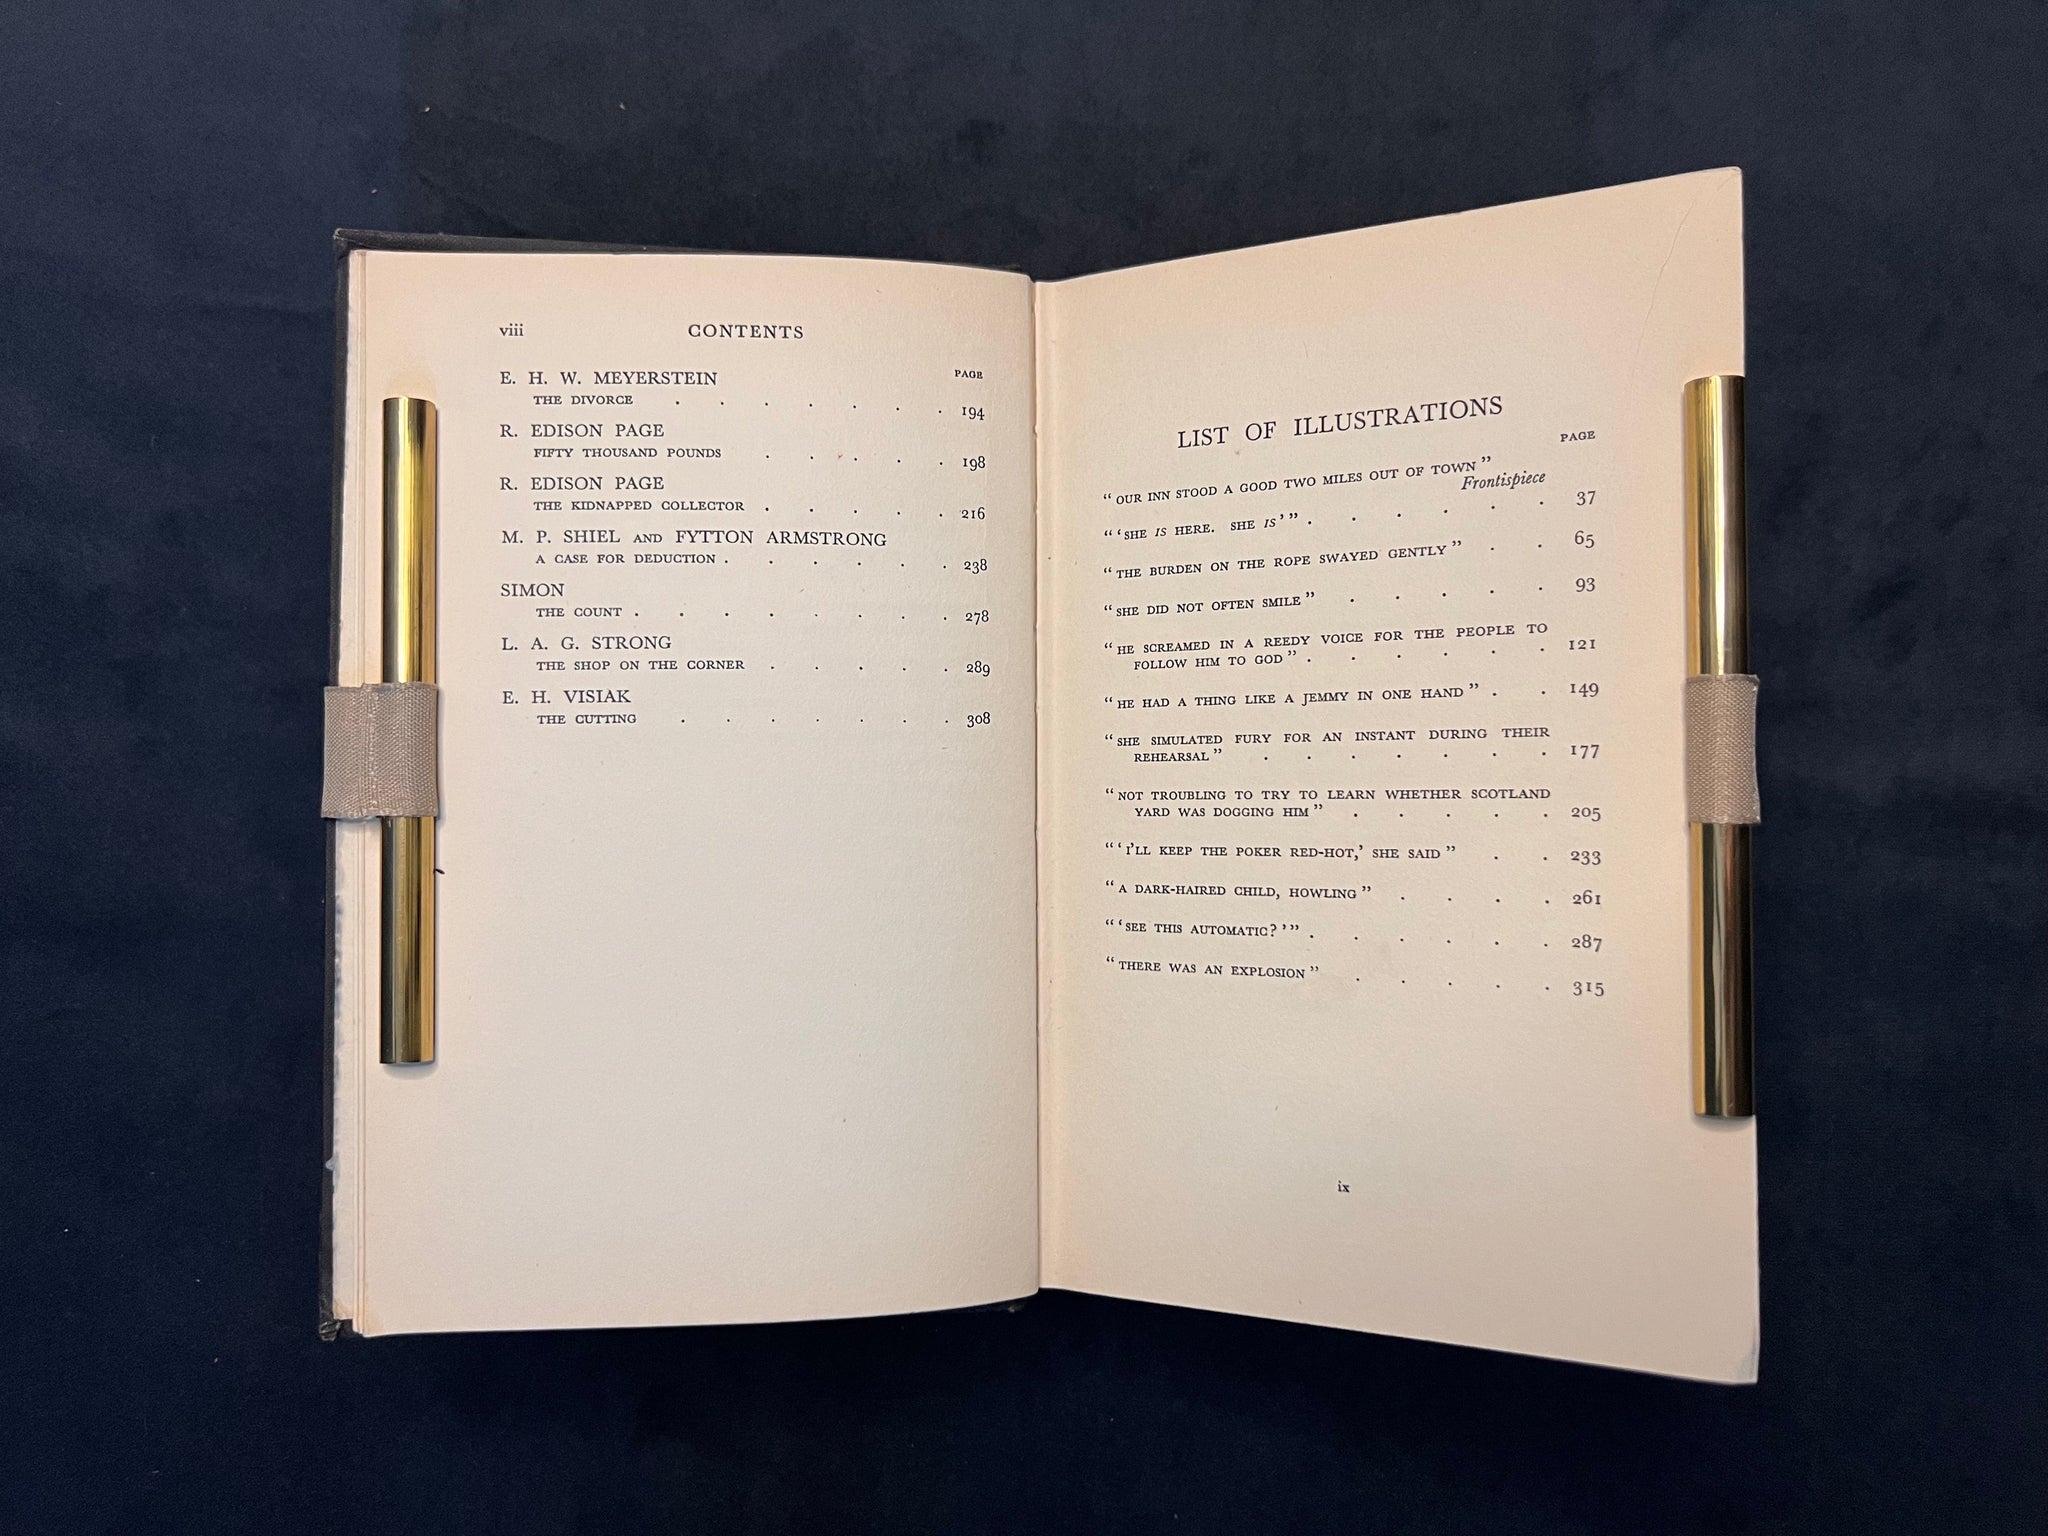 viii CONTENTS
PAGE
E. H. W. MEYERSTEIN
THE DIVORCE . . . . . . . 194
R. EDISON PAGE
FIFTY THOUSAND POUNDS . . . . . 198
R. EDISON PAGE
THE KIDNAPPED COLLECTOR . . . . . 216
M. P. SHIEL AND FYTTON ARMSTRONG
A CASE FOR DEDUCTION . . . . . . 238
SIMON
THE COUNT . . . . . . . . 278
L. A. G. STRONG
THE SHOP ON THE CORNER . . . . . 289
E. H. VISIAK
THE CUTTING . . . . . . . 308
LIST OF ILLUSTRATIONS
PAGE
“OUR INN STOOD A GOOD TWO MILES OUT OF TOWN”
Frontispiece
“‘SHE IS HERE. SHE IS’” . . . . . . 37
“THE BURDEN ON THE ROPE SWAYED GENTLY” . . 65
“SHE DID NOT OFTEN SMILE” . . . . . 93
“HE SCREAMED IN A REEDY VOICE FOR THE PEOPLE TO
FOLLOW HIM TO GOD” . . . . . . 121
“HE HAD A THING LIKE A JEMMY IN ONE HAND” . . 149
“SHE SIMULATED FURY FOR AN INSTANT DURING THEIR
REHEARSAL” . . . . . . . 177
“NOT TROUBLING TO TRY TO LEARN WHETHER SCOTLAND
YARD WAS DOGGING HIM” . . . . . 205
“‘I’LL KEEP THE POKER RED-HOT,’ SHE SAID” . . 233
“A DARK-HAIRED CHILD, HOWLING” . . . . 261
“‘SEE THIS AUTOMATIC?’” . . . . . . 287
“THERE WAS AN EXPLOSION” . . . . . 315
ix